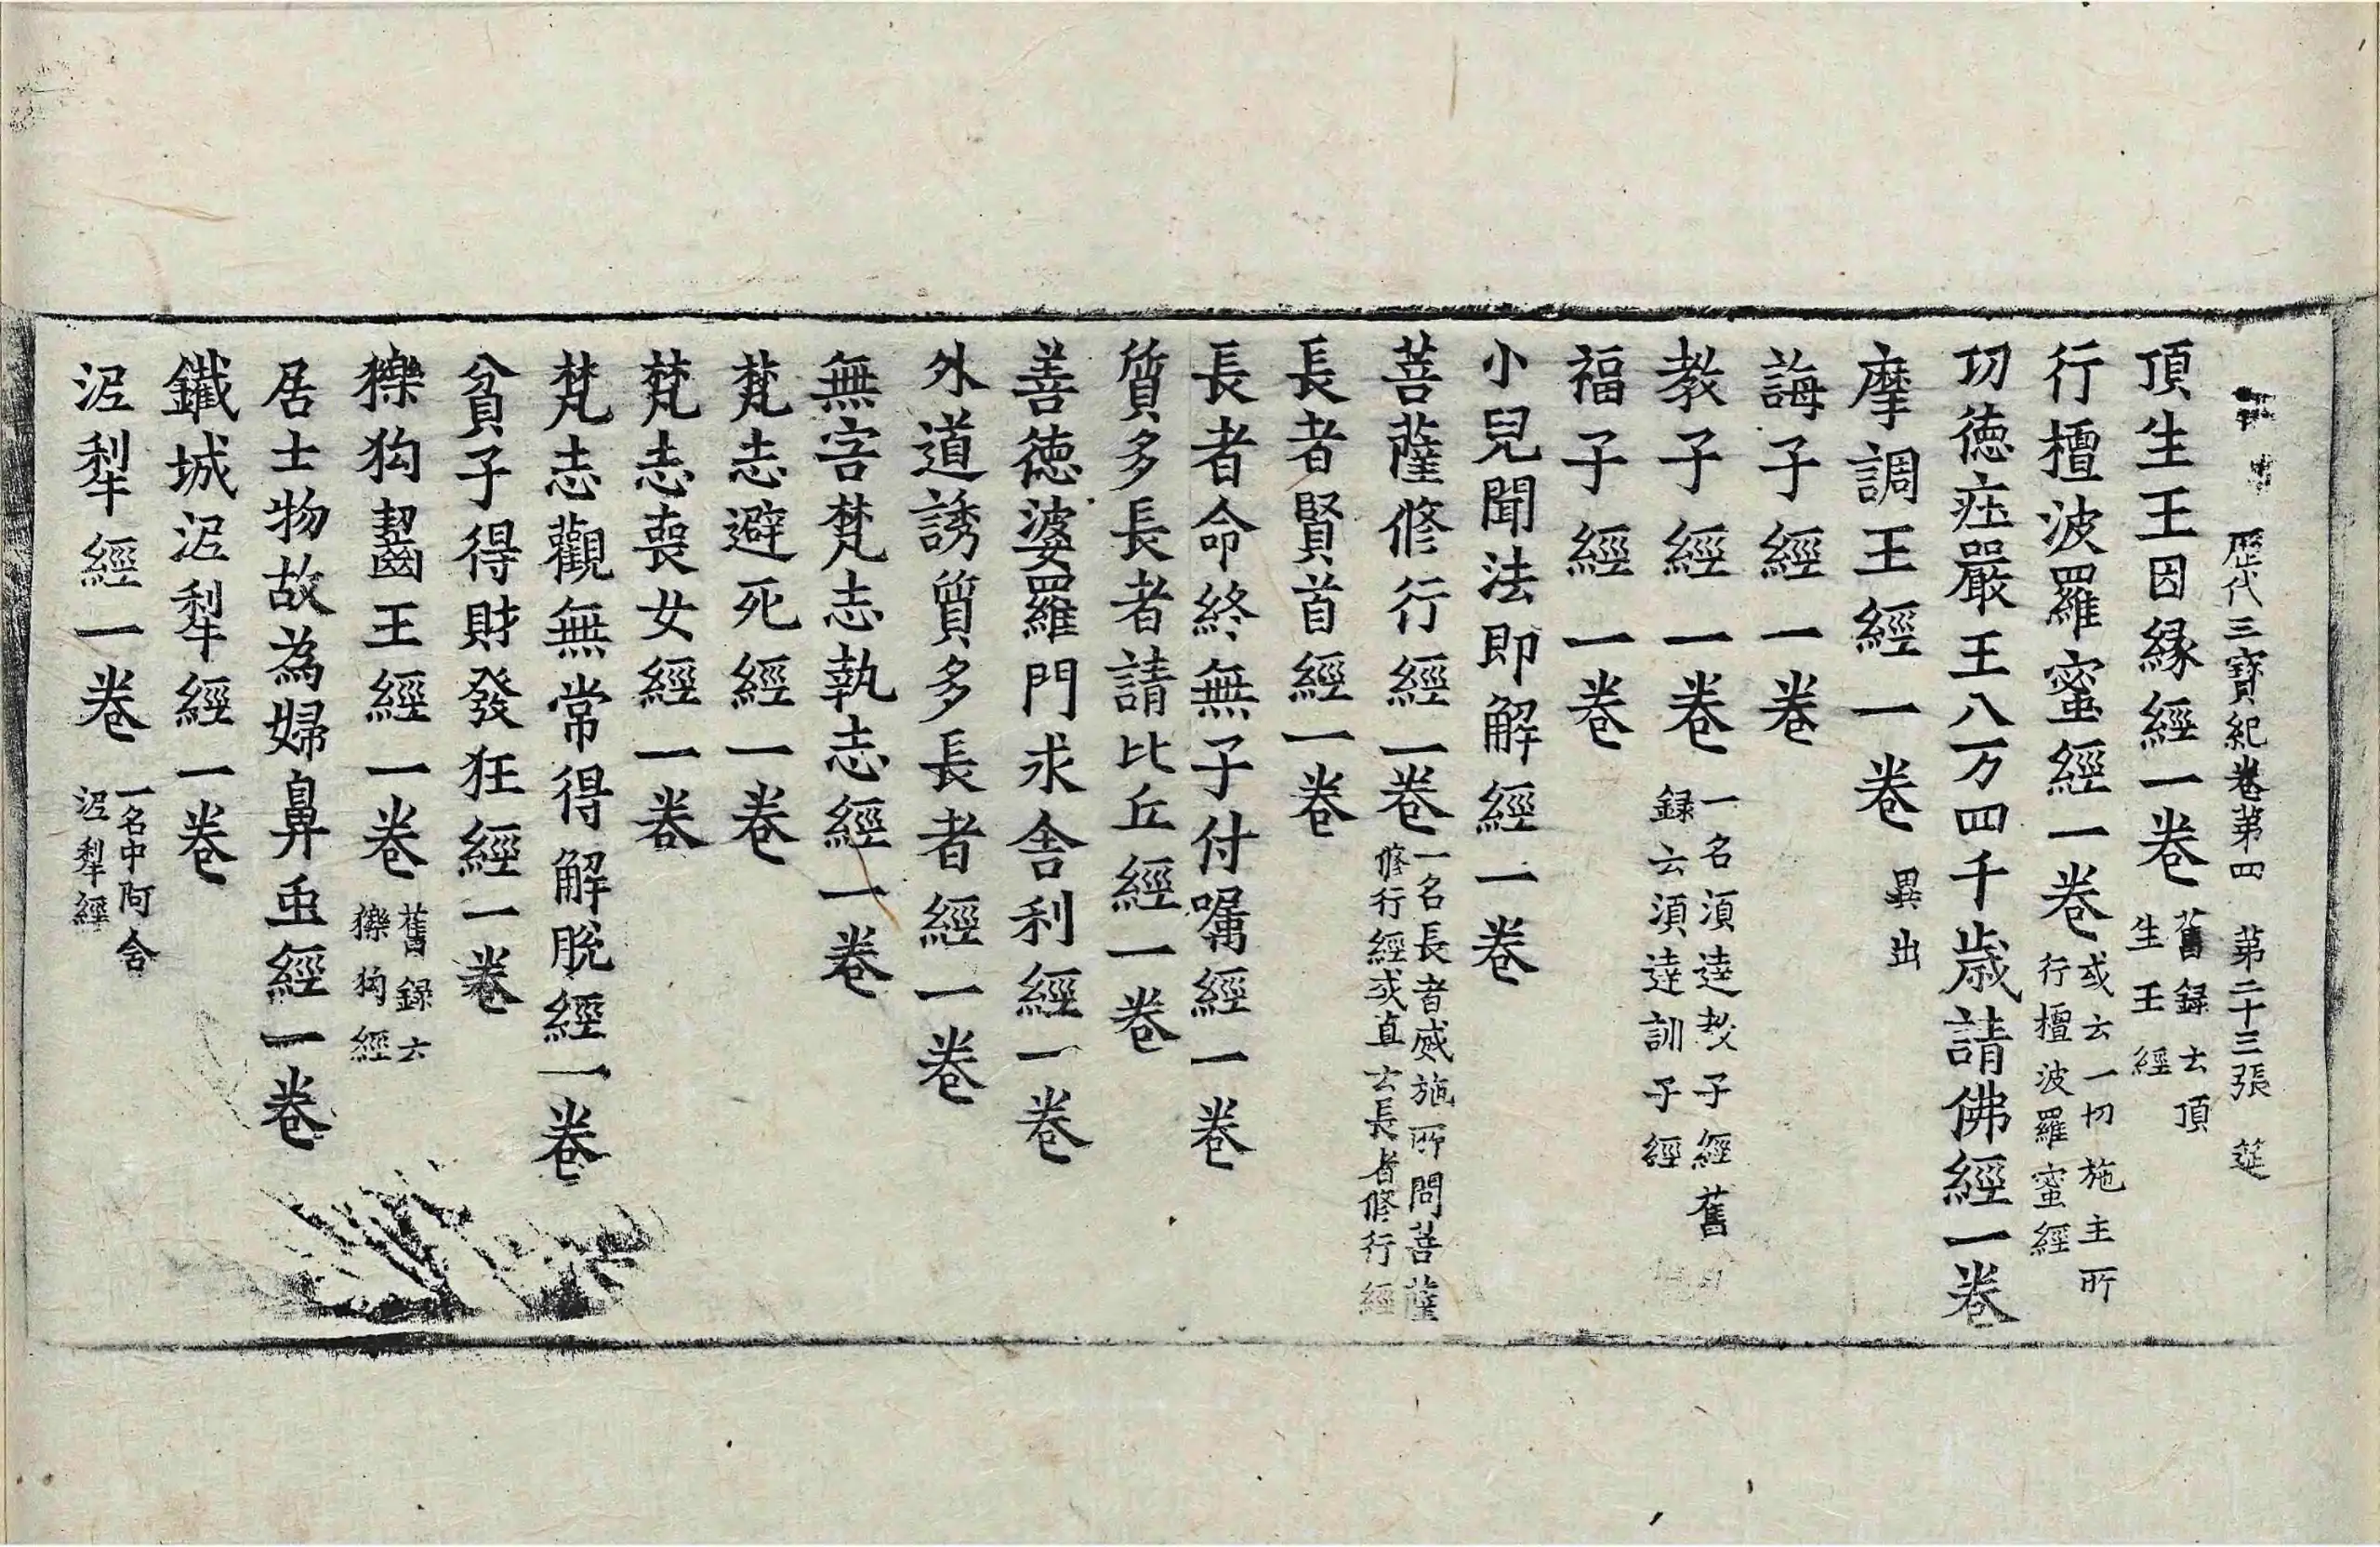 歷代三寶紀卷第四 第二十三張 筵
頂生王因緣經一卷 舊録云頂生王經
行檀波羅蜜經一卷 或云一切施主所行檀波羅蜜經
切德庄嚴王八万四千歲請佛經一卷
摩調王經一卷 異出
誨子經一卷
教子經一卷 一名湏達教子經舊録云湏達訓子經
福子經一卷
小兒聞法即解經一卷
菩薩修行經一卷 一名長者威施所問菩薩修行經或直云長者修行經
長者賢首經一卷
長者命終無子付囑經一卷
質多長者請比丘經一卷
善德婆羅門求舍利經一卷
外道誘質多長者經一卷
無害梵志執志經一卷
梵志避死經一卷
梵志喪女經一卷
梵志觀無常得解脫經一卷
貧子得財發狂經一卷
㹎狗齧王經一卷 舊録云㹎狗經
居士物故為婦鼻䖝經一卷
鐵城泥犁經一卷
泥犁經一卷 一名中阿含泥犁經